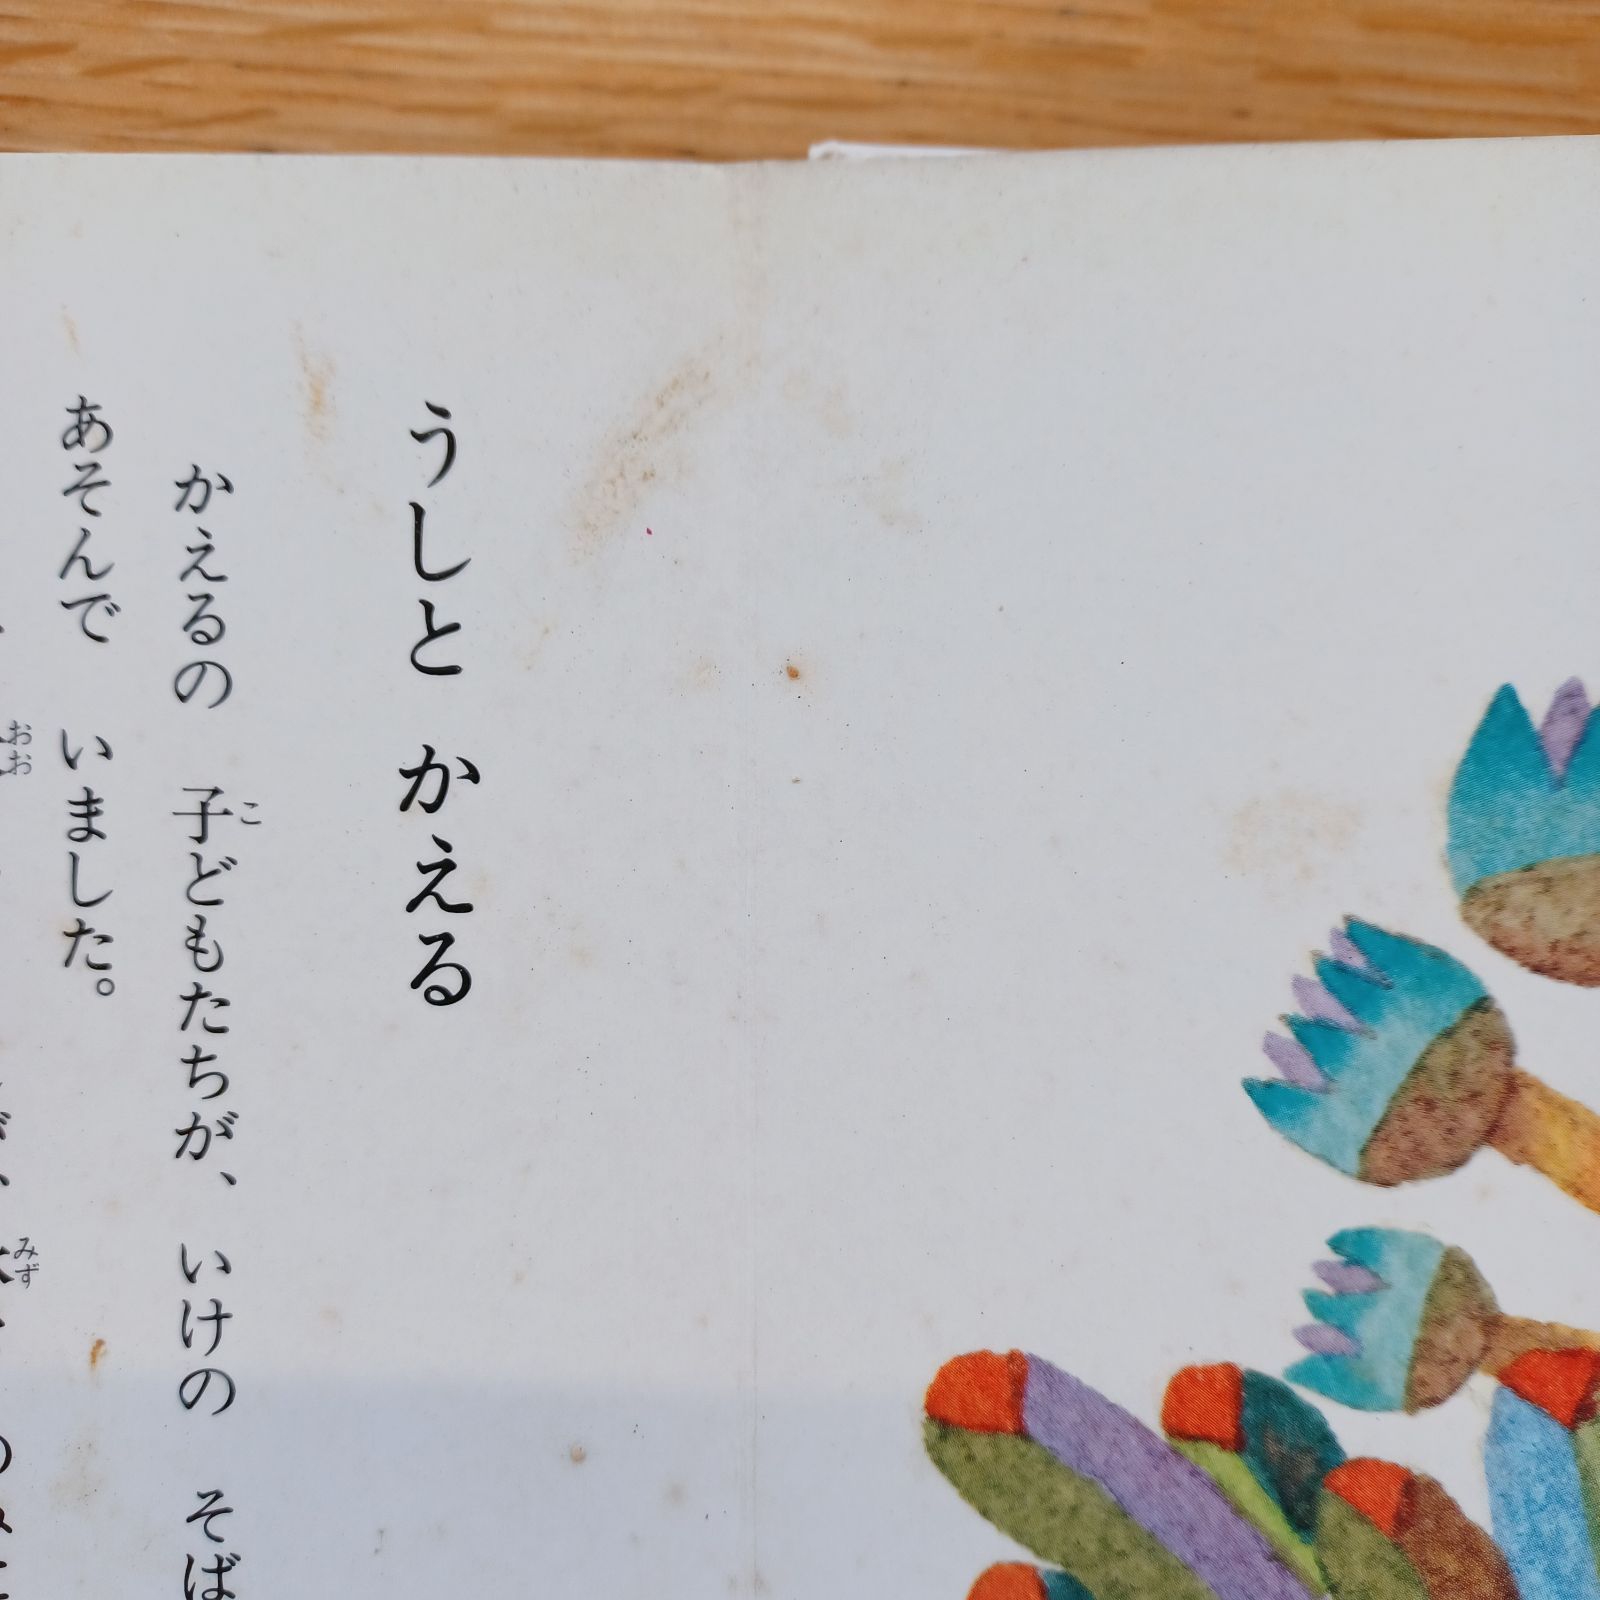 うしと かえる
かえるの 子どもたちが、 いけの そば
こ
あそんで いました。
おお
みず